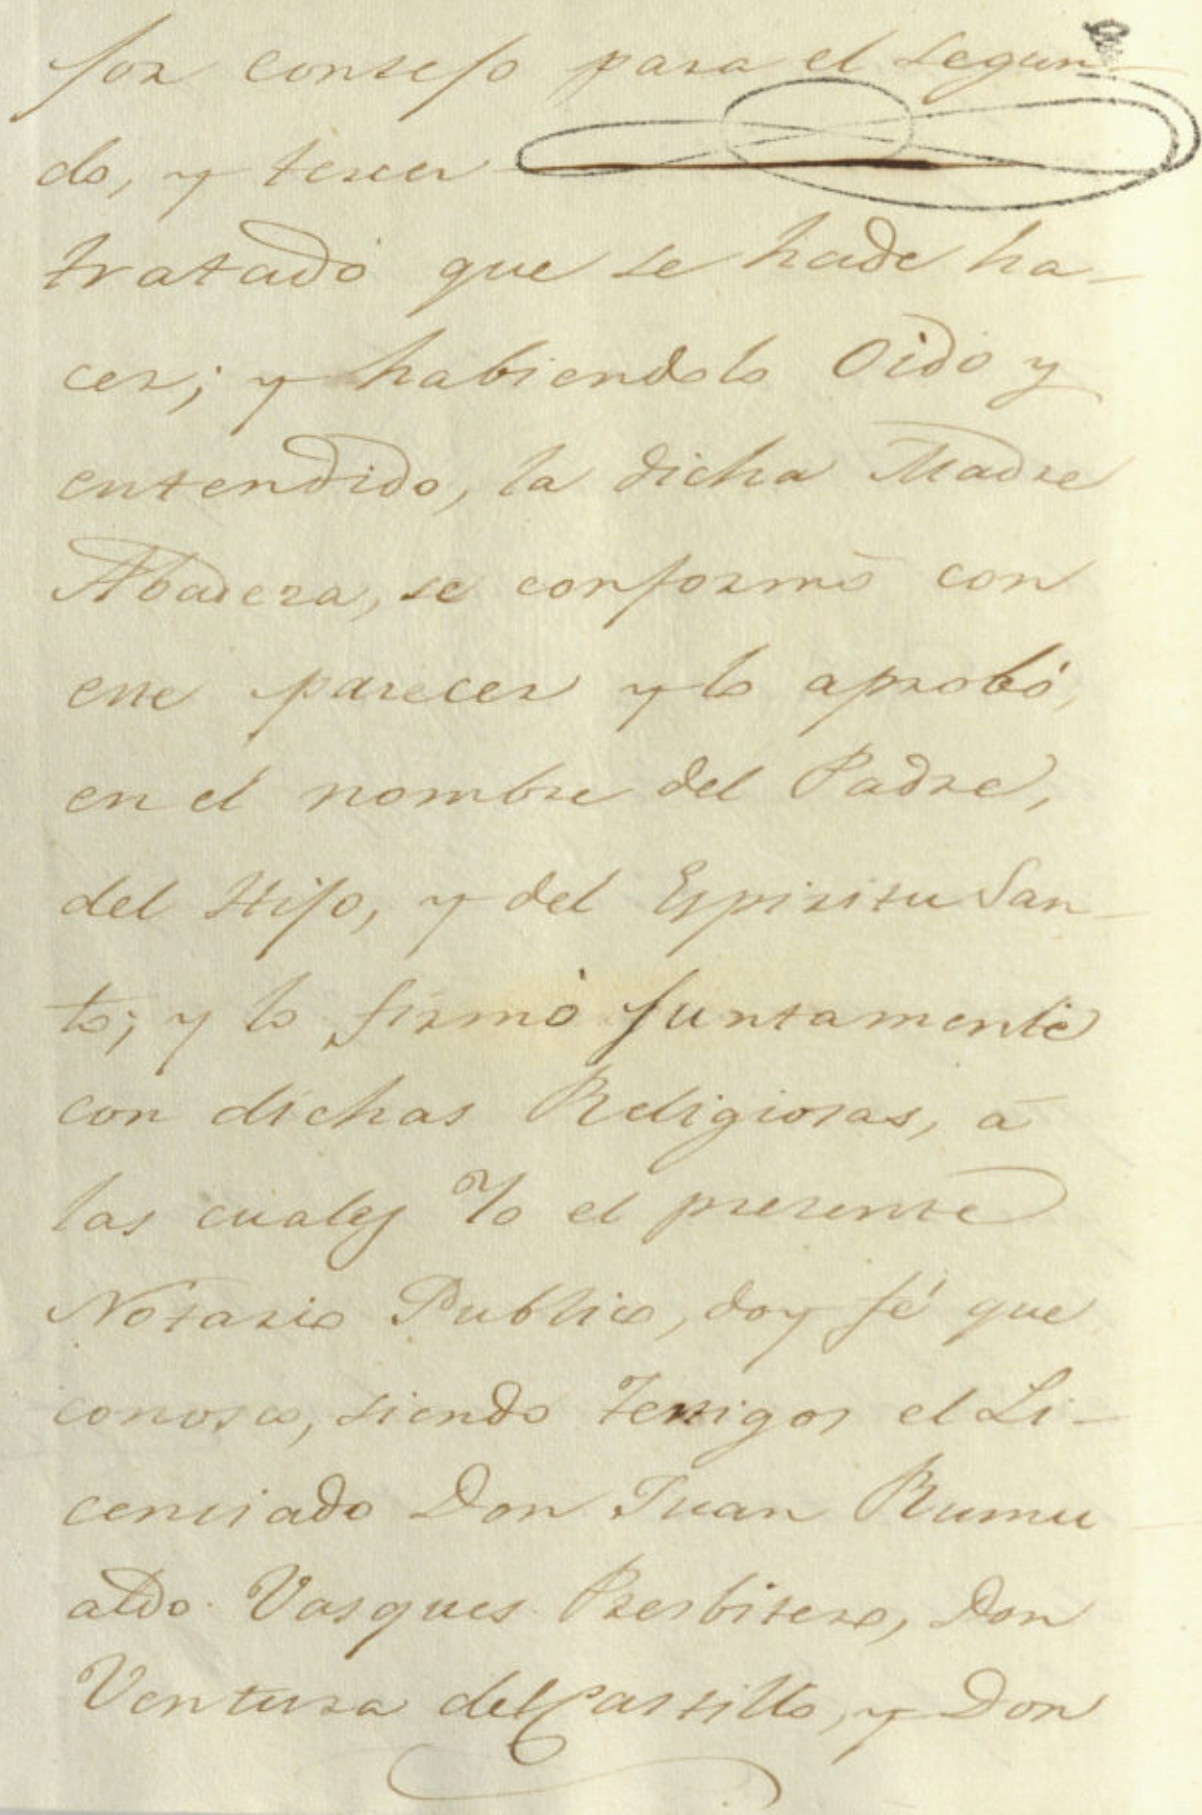 jor consejo para el segun-
do, y tercer
tratado que se hade ha-
cer; y habiendolo Oido y
entendido, la dicha Madre
Abadeza, se conformó con
ese parecer y lo aprobó,
en el nombre del Padre,
del Hijo, y del Espiritu San-
to; y lo firmò juntamente
con dichas Religiosas, á
las cuales Yo el presente
Notario Publico, doy fé que
conosco, siendo testigos el Li-
cenciado Don Juan Rumu
aldo Vasques Presbitero, Don
Ventura del Castillo, y Don